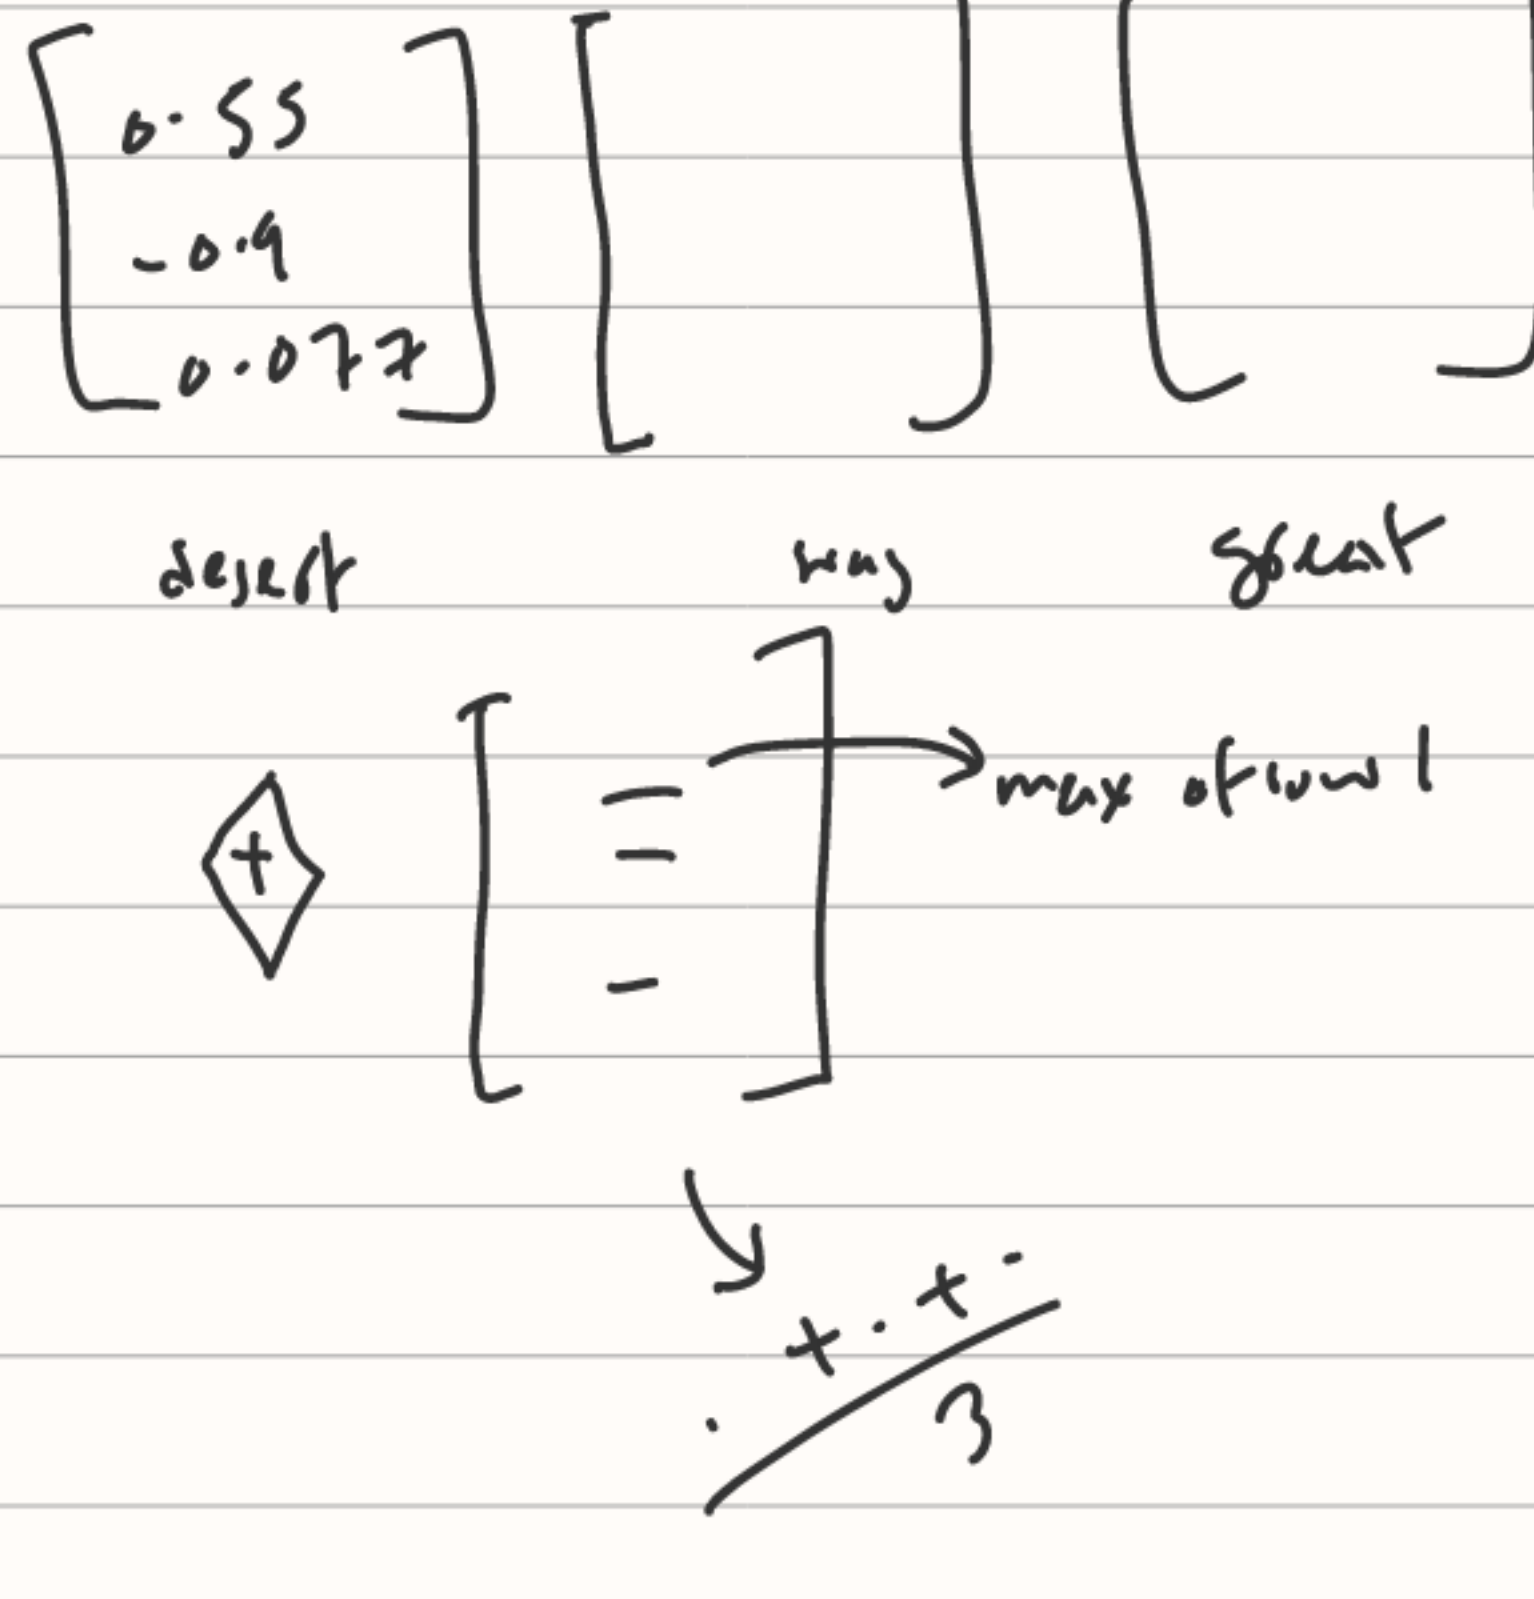 0.55
-0.9
0.077
desert was great
+
max of row 1
. + . + .
3